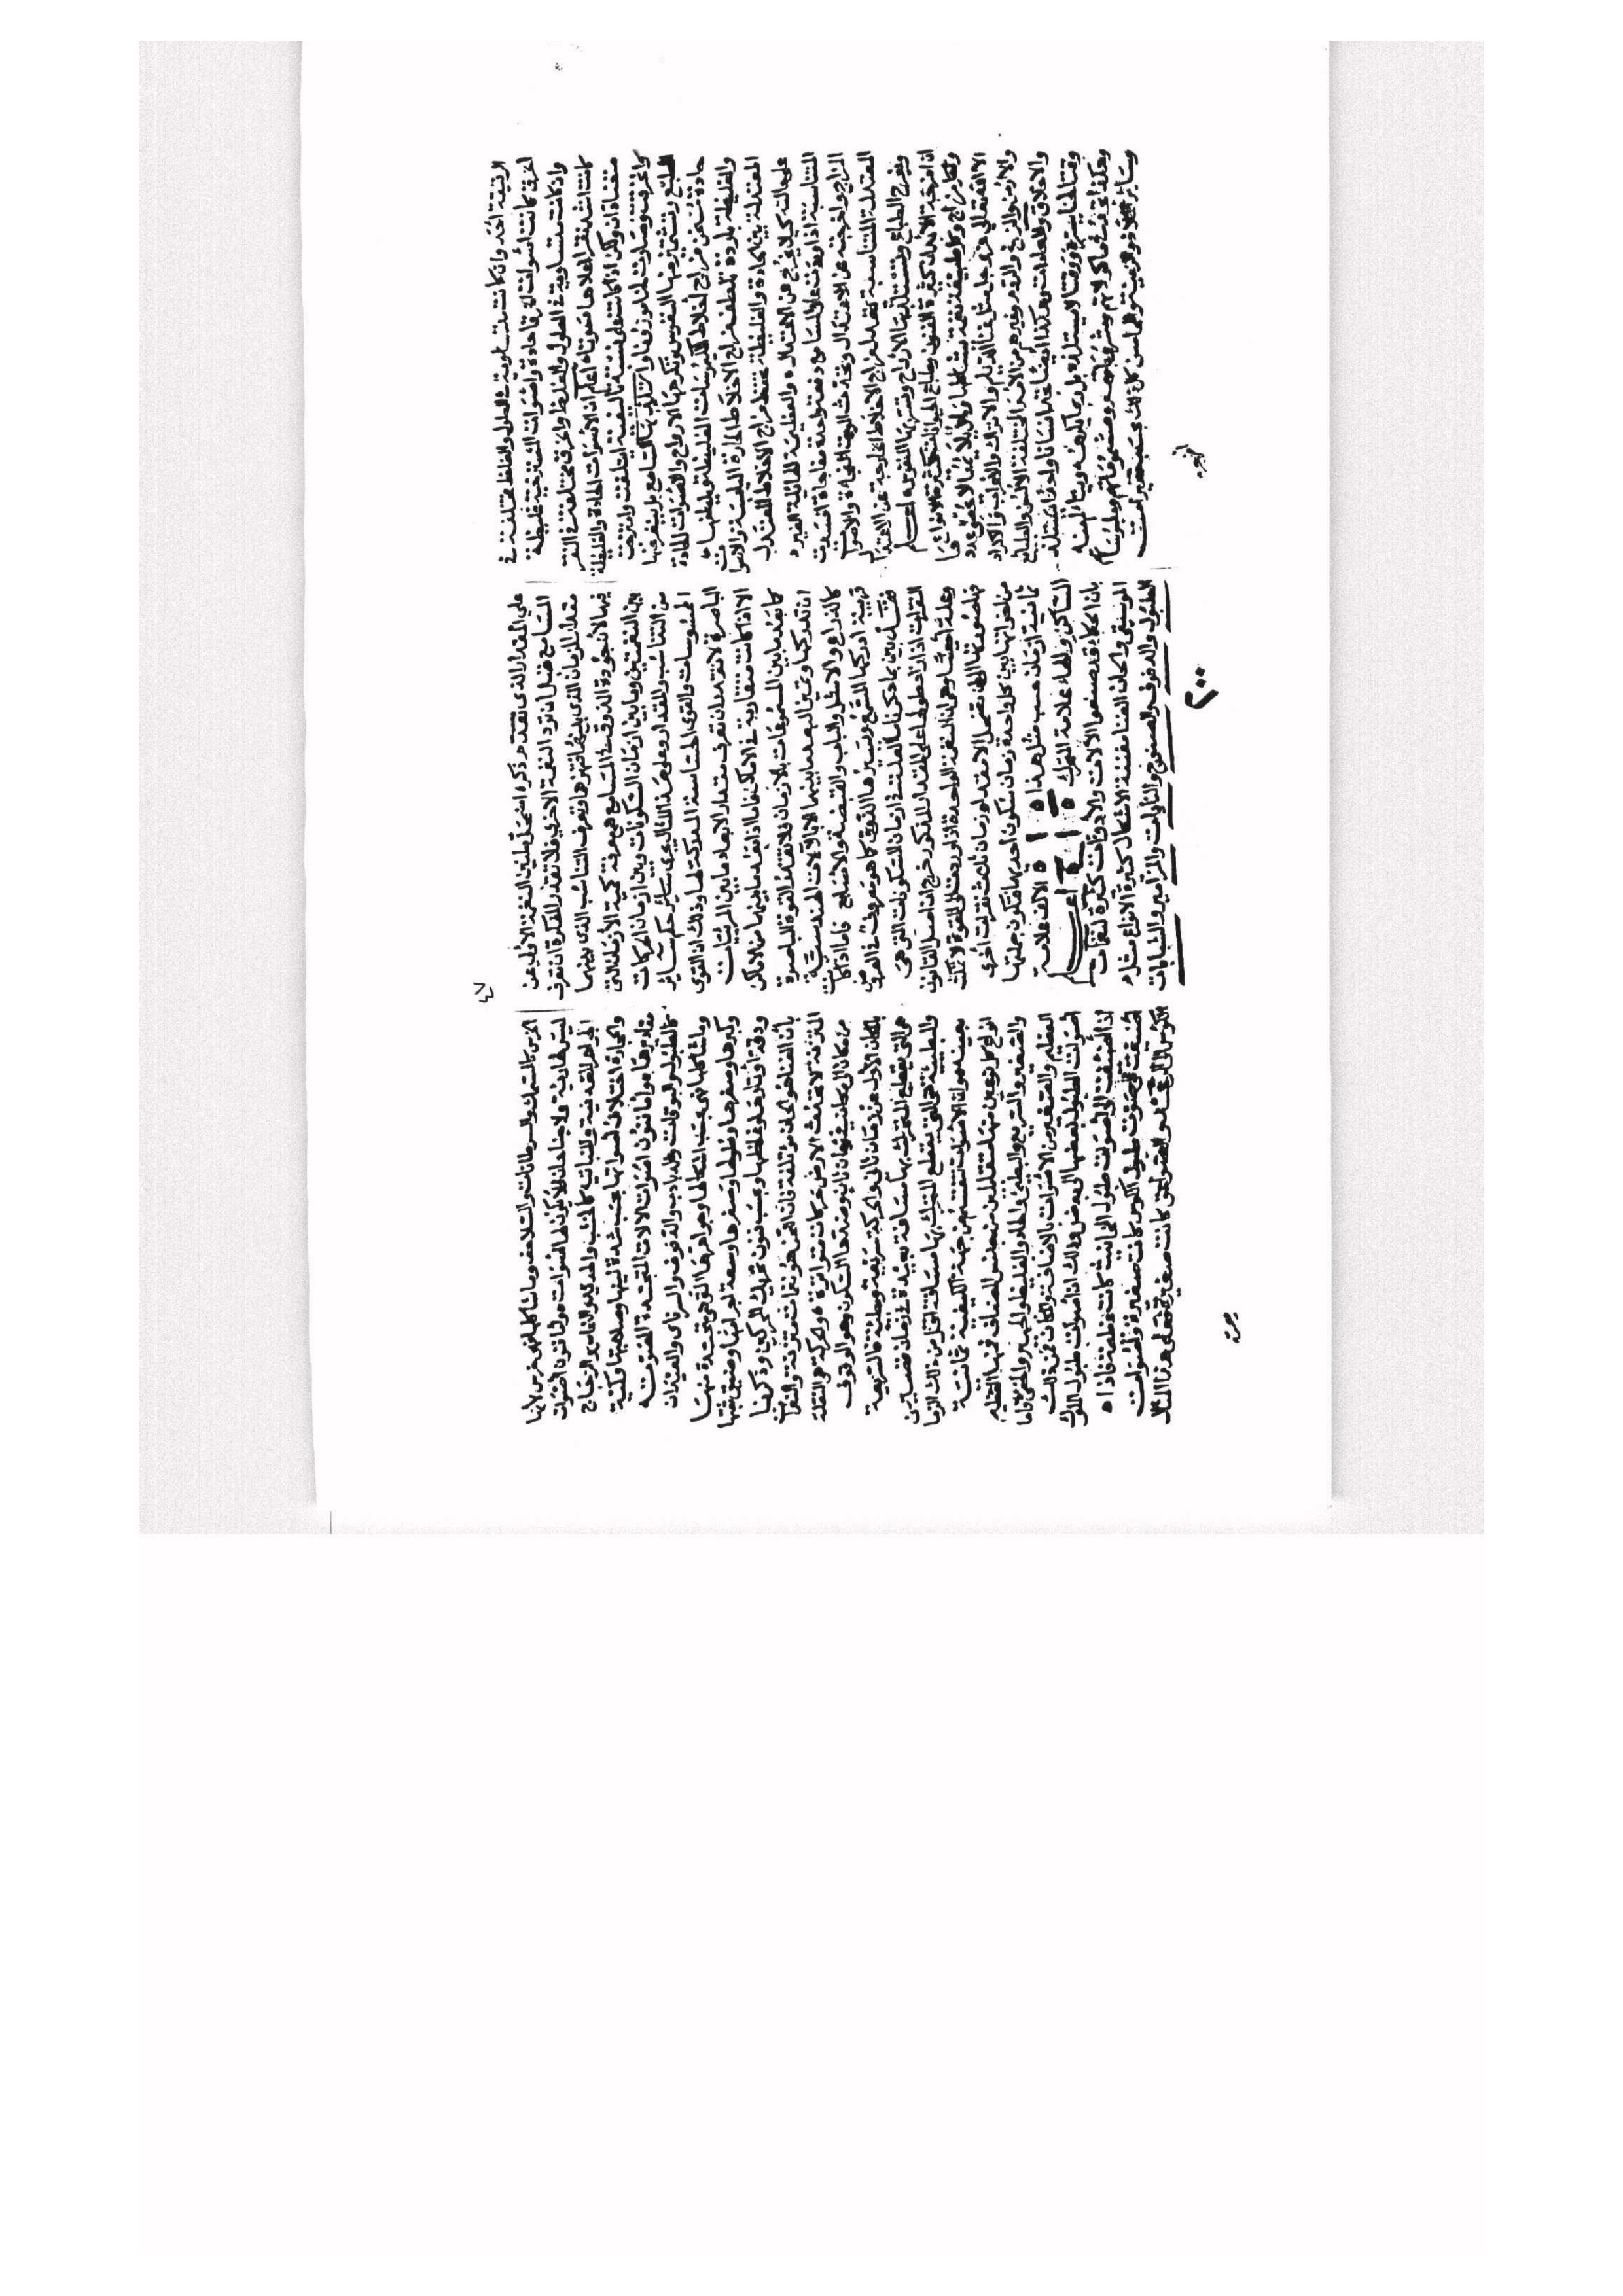 الرقيقة أحد وان كانت متساوية في الطول والغلظ مختلفة في
الخرق كانت أصوات المخرقة حادة وأصوات المسترخية غليظة
وان كانت متساوية في الطول والغلظ والخرق مختلفة في النقر
كانت أشدها نقرا أعلاها صوتا ه اعلم ان الأصوات الحادة والغليظة
متضادتان ولكن اذا كانت على نسبة تأليفية ائتلفت وامتزجت
واتحدت وصارت لحنا موزونا واستلذتها المسامع
الطبع وتشمئز منها النفوس وتكرهها الارواح والأصوات الحادة
حادة تسخن مزاج اخلاط الكيموسات الغليظة وتلطفها ه
والغليظة باردة ترطب مزاج الاخلاط الحارة اليابسة والأصوات
المعتدلة بين الحادة والغليظة تحفظ مزاج الاخلاط المعتدل
على حالته كيلا يخرج عن الاعتدال ه والعظيمة الهائلة الغير
المتناسبة اذا وردت على المسامع دفعة واحدة مفاجأة افسدت
المزاج واخرجته عن الاعتدال وتحدث الموت الفجأة والأصوات
المعتدلة المتناسبة تعدل مزاج الاخلاط الخارجة عن الاعتدال
وتفرح الطباع وتستلذ بها الأرواح وتسر بها النفوس ه اعلم
ان امزجة الأبدان كثيرة الفنون وطباع الحيوانات كثيرة الأنواع
ولكل مزاج وكل طبيعة نغمة تشاكلها ولحن يلائمها لا يحصي عددها
الا الله تعالى عز وجل مثل غناء الديلم والأتراك والاعراب والأكراد
والأرمن والزنج والروم وغيرهم من الأمم المختلفة الألسن والطباع
والأخلاق والعادات وهكذا أيضا تجد انسانا واحدا يستلذ
وقتا لحنا ثم وقتا لا يستلذه بل ربما يكرهه ويتألم منه
وهكذا تجد حكمهم في مأكولاتهم ومشروباتهم ومشموماتهم وملبوساتهم
وسائر الملاذ والزينة والمحاسن كل ذلك بحسب تغييرات
على المقدار الذي تقدم ذكره امتحى طنين النغمة الأولى عن
المسامع قبل ان ترد النغمة الاخرى فلا تقدر المفكرة ان تعرف
مقدار الزمان الذي بينهما فتميزها وتعرف التناسب الذي بينهما
فيها لأن جودة الذوق في المسامع هي معرفة كمية الأزمان التي
بين النغمتين وما بين ازمان السكونات وبين ازمان الحركات
من التناسب والمقدار وعلى هذا المثال يجري سائر حكم سائر
المحسوسات والقوى الحساسة المدركة لها وذلك ان القوى
الباصرة لا تقدر ان تعرف مقدار الأبعاد ما بين المرئيات
الا اذا كانت متقاربة في الأماكن فأما اذا بعد ما بينهما من الأماكن
كما بعد ما بين المسموعات بالأزمان فلا تقدر القوة الباصرة
ان تدركها وتميز البعد ما بينهما الا بآلات الهندسية
كالذراع والأشل والباب والقبضة والأصابع فأما اذا كانت
قريبة ادركها السمع وتميزها الذوق كما هو معروف في العروض
فقد تبين بما ذكرنا ما العلة في ازمان السكونات التي هي
النقرات اذا زاد طولها على المقدار المذكور خرج من أصل القانون
وعلة أيضا وهي ان النغمة الواحدة اذا وردت على القوة لا تمكث
فيها صوتها الا مقدار زمان ثلاث نقرات اخرى
من اخواتها بين كل واحدة زمان سكون اخذها فتكون جملتها
ثمانية ازمان حسب مثل هذا ه ١ ه ١ ه ١ ه الالف علامة
الساكن والهاء علامة المتحرك اعلم
بان الحكماء قد صنعوا الآلات والأدوات كثيرة لنغمات
الموسيقى والحان الغنا مفننة الاشكال كثيرة الانواع مثل
الطبول والدفوف والصنوج والنايات والمزامير والشبابات
٢٠٠
٤٧
الخرس كالسمك والسرطانات والسلاحف وما شاكلها فهي خرس لأنها
ليس لها رئة ولا جناحان فلا يكون لها أصوات ه وأما تنوع أصوات
الجواهر المعدنية والنباتية كالخشب والحديد والنحاس والزجاج
والحجارة اختلاف أصواتها بحسب شدة يبسها وصلابتها وكمية
مقاديرها ه وأما تنوع أصوات الآلات المتخذة للتصويت
كالطبول والبوقات والدبادب والدفوف والسرناي والعيدان
وما شاكلها فهي بحسب اشكالها وجواهرها التي هي متخذة منها
وكبرها وصغرها وطولها وقصرها وسعة أجوافها وضيق ثقبها
ودقة أوتارها وغلظها وبحسب فنون تحريك المحركين وذكرنا
بأن الغنا هو الحان مؤتلفة فان اللحن هو نغمات متزنة والنغمات
المتزنة لا تحدث الا من حركات متواترة ه والحركة هي النقلة
من مكان الى مكان في زمان ثان وضدها السكون وهو الوقوف
بالمكان الأول في زمان ثان والحركة سريعة وبطيئة فالسريعة
هي التي يقطع المتحرك بها مسافة بعيدة في زمان قصير
والبطيئة هي التي يقطع المتحرك بها مسافة أقل من ذلك الزمان
بعينه ه وان الأصوات تنقسم من جهة الكيفية ثمانية
أنواع كل نوعين منها متقابلين من جنس المضاف فمنها العظيم
والصغير والسريع والبطيء والحاد والغليظ والجهير والخفي فأما
العظيم والصغير من الأصوات بالاضافة فكأن من ذلك
أصوات الطبول بعضها الى بعض وذلك ان أصوات طبول الملوك
اذا أضيفت الى أصوات طبول المخانيث كانت عظيمة فاذا
أضيفت الى صوت طبول الكوس كانت صغيرة وأصوات
الكوس الى الرعد والصواعق كانت صغيرة فعلى هذا المثال